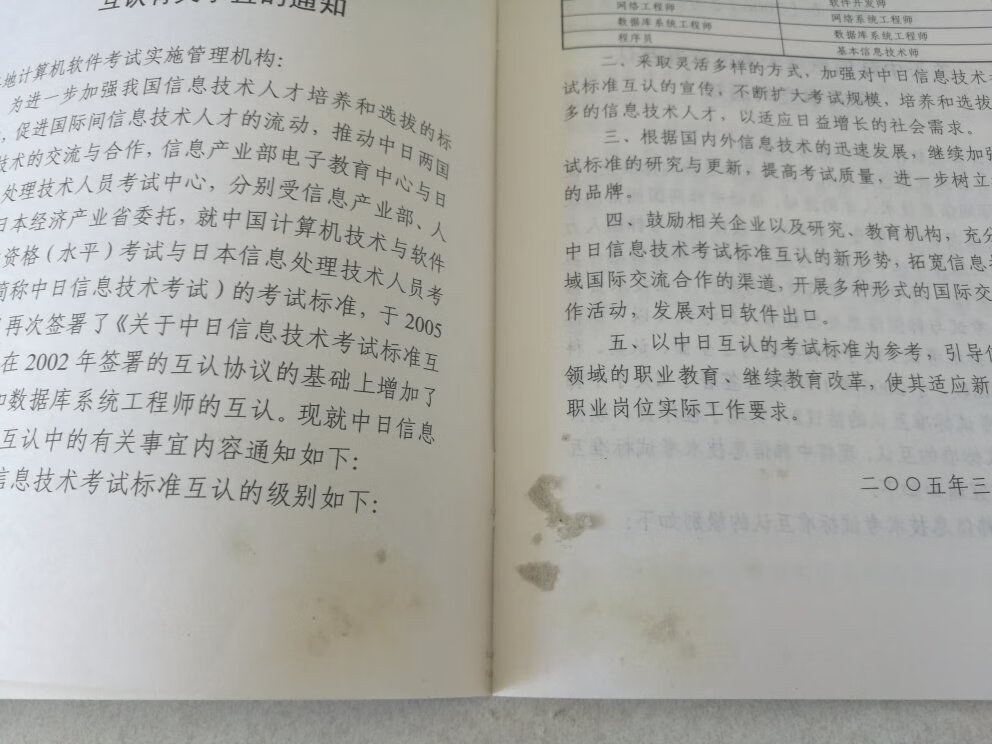 互认有关事宜的通知
地计算机软件考试实施管理机构：
为进一步加强我国信息技术人才培养和选拔的标
，促进国际间信息技术人才的流动，推动中日两国
技术的交流与合作，信息产业部电子教育中心与日
处理技术人员考试中心，分别受信息产业部、人
日本经济产业省委托，就中国计算机技术与软件
资格（水平）考试与日本信息处理技术人员考
简称中日信息技术考试）的考试标准，于 2005
再次签署了《关于中日信息技术考试标准互
在 2002 年签署的互认协议的基础上增加了
和数据库系统工程师的互认。现就中日信息
互认中的有关事宜内容通知如下：
信息技术考试标准互认的级别如下：
网络工程师 软件开发师
数据库系统工程师 网络系统工程师
程序员 数据库系统工程师
基本信息技术师
二、采取灵活多样的方式，加强对中日信息技术考
试标准互认的宣传，不断扩大考试规模，培养和选拔
多的信息技术人才，以适应日益增长的社会需求。
三、根据国内外信息技术的迅速发展，继续加强
试标准的研究与更新，提高考试质量，进一步树立
的品牌。
四、鼓励相关企业以及研究、教育机构，充分
中日信息技术考试标准互认的新形势，拓宽信息
域国际交流合作的渠道，开展多种形式的国际交
作活动，发展对日软件出口。
五、以中日互认的考试标准为参考，引导信
领域的职业教育、继续教育改革，使其适应新
职业岗位实际工作要求。
二〇〇五年三